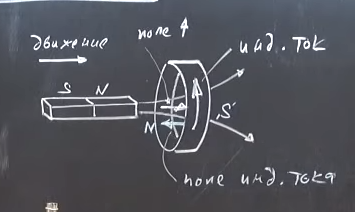 движение
поле ↑
инд. ток
S N
N
S
поле инд. тока